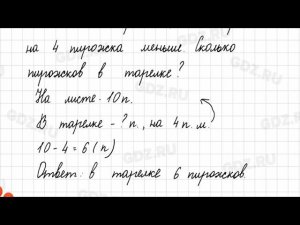 на 4 пирожка меньше. Сколько
пирожков в тарелке?
На листе - 10 п.
В тарелке - ? п., на 4 п. м.
10 - 4 = 6 (п)
Ответ: в тарелке 6 пирожков.
GDZ.RU